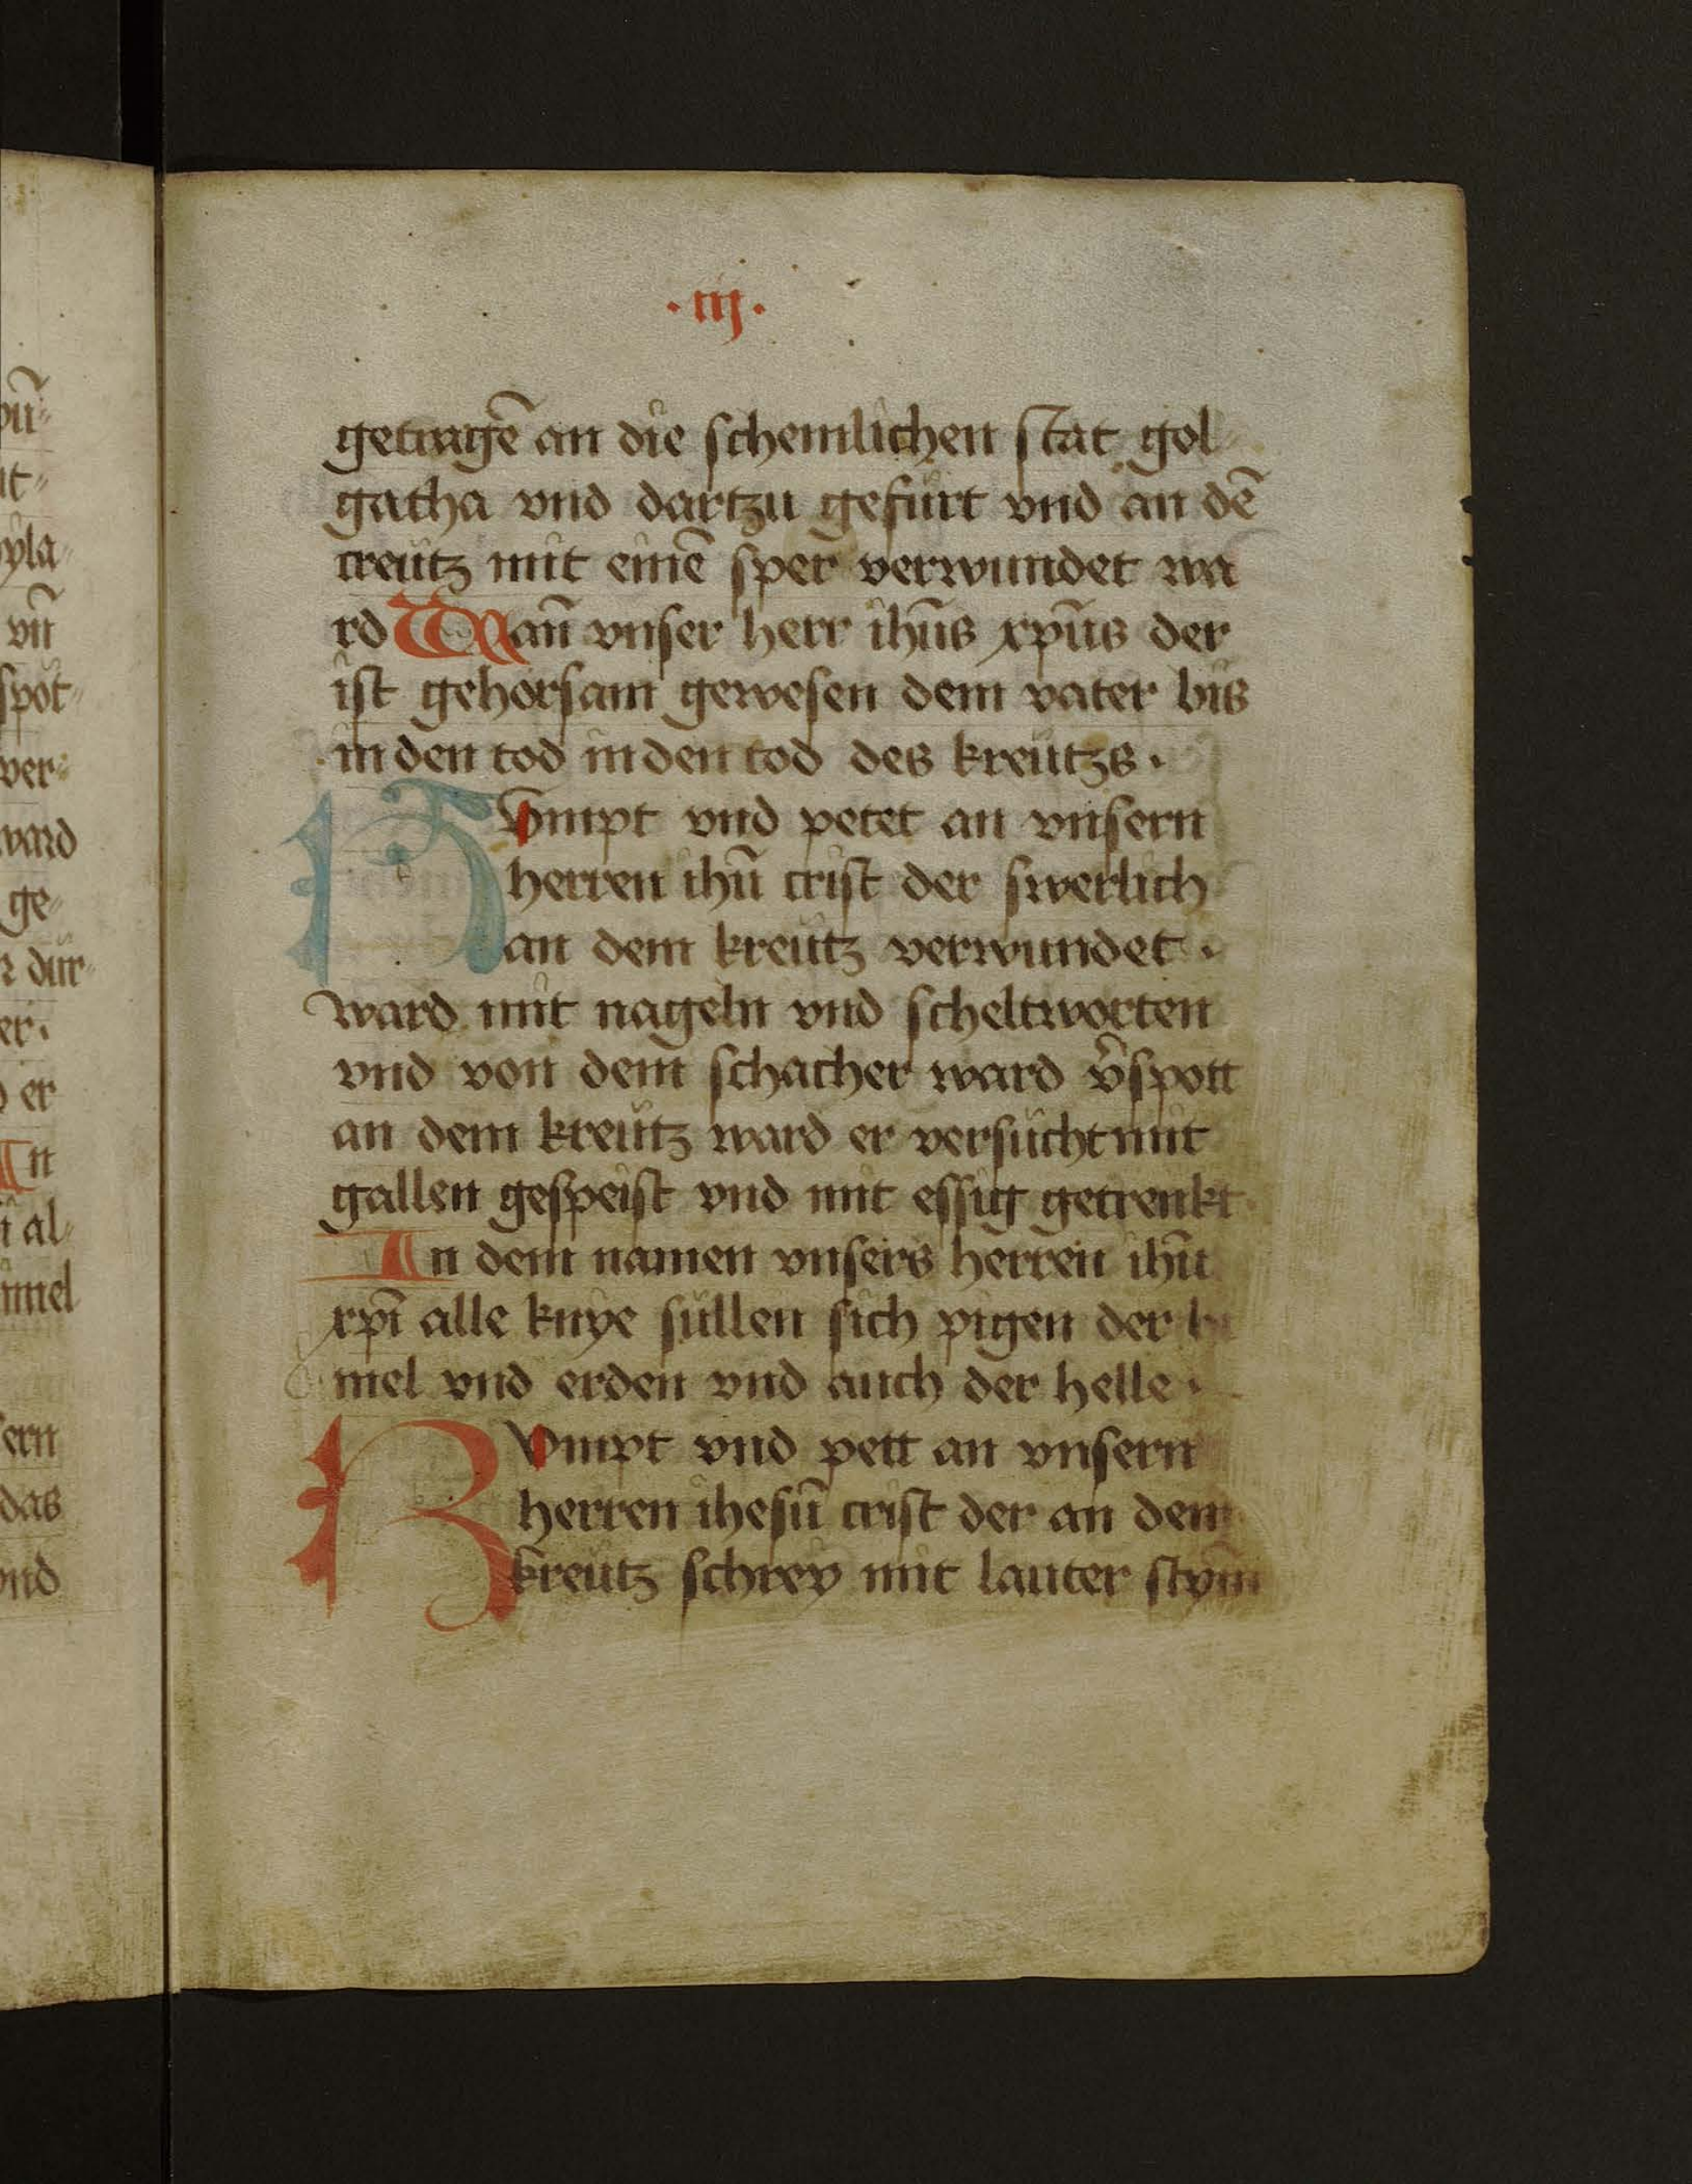 · iij ·
getragē an die schemlichen stat gol
gatha vnd dartzu gefürt vnd an dē
creütz mit einē sper verwundet wa
rd Wan̄ vnser herr ihūs xpūs der
ist gehorsam gewesen dem vater bis
in den tod in den tod des kreützs ·
KVmpt vnd petet an vnsern
herren ihū crist der swerlich
an dem kreütz verwundet ·
ward mit nageln vnd scheltworten
vnd von dem schacher ward v̄spott
an dem kreütz ward er versücht mit
gallen gespeist vnd mit essig getrenkt
In dem namen vnsers herren ihū
xpī alle knÿe süllen sich pigen der hi
mel vnd erden vnd auch der helle ·
KVmpt vnd pett an vnsern
herren ihesū crist der an dem
kreütz schrey mit lauter stym̄